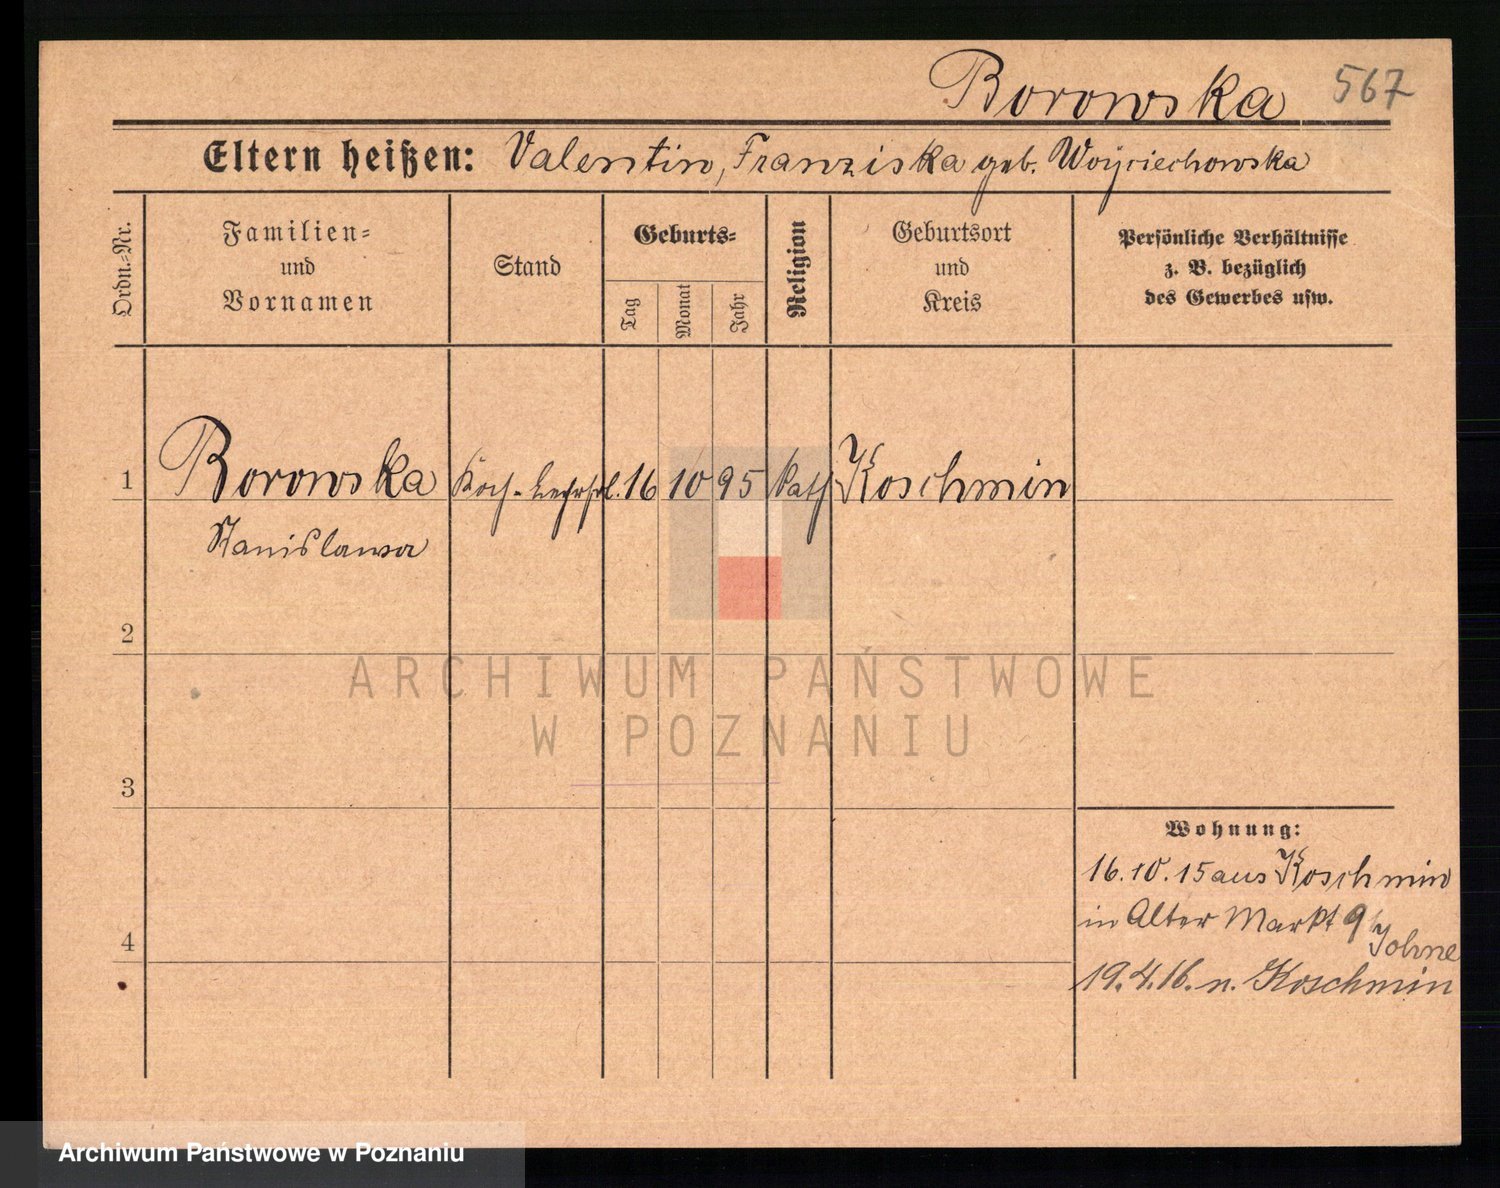 Borowska 567
Eltern heißen: Valentin, Franziska geb. Woyciechowska
Ordn.-Nr.
Familien-
und
Vornamen
Stand
Geburts-
Tag
Monat
Jahr
Religion
Geburtsort
und
Kreis
Persönliche Verhältnisse
z. B. bezüglich
des Gewerbes usw.
1 Borowska Koch-Lehrfrl. 16 10 95 kath Koschmin
Stanislawa
2
ARCHIWUM PAŃSTWOWE
W POZNANIU
3
Wohnung:
16.10.15 aus Koschmin
in Alter Markt 9
4
19.4.16. n. Koschmin
Archiwum Państwowe w Poznaniu